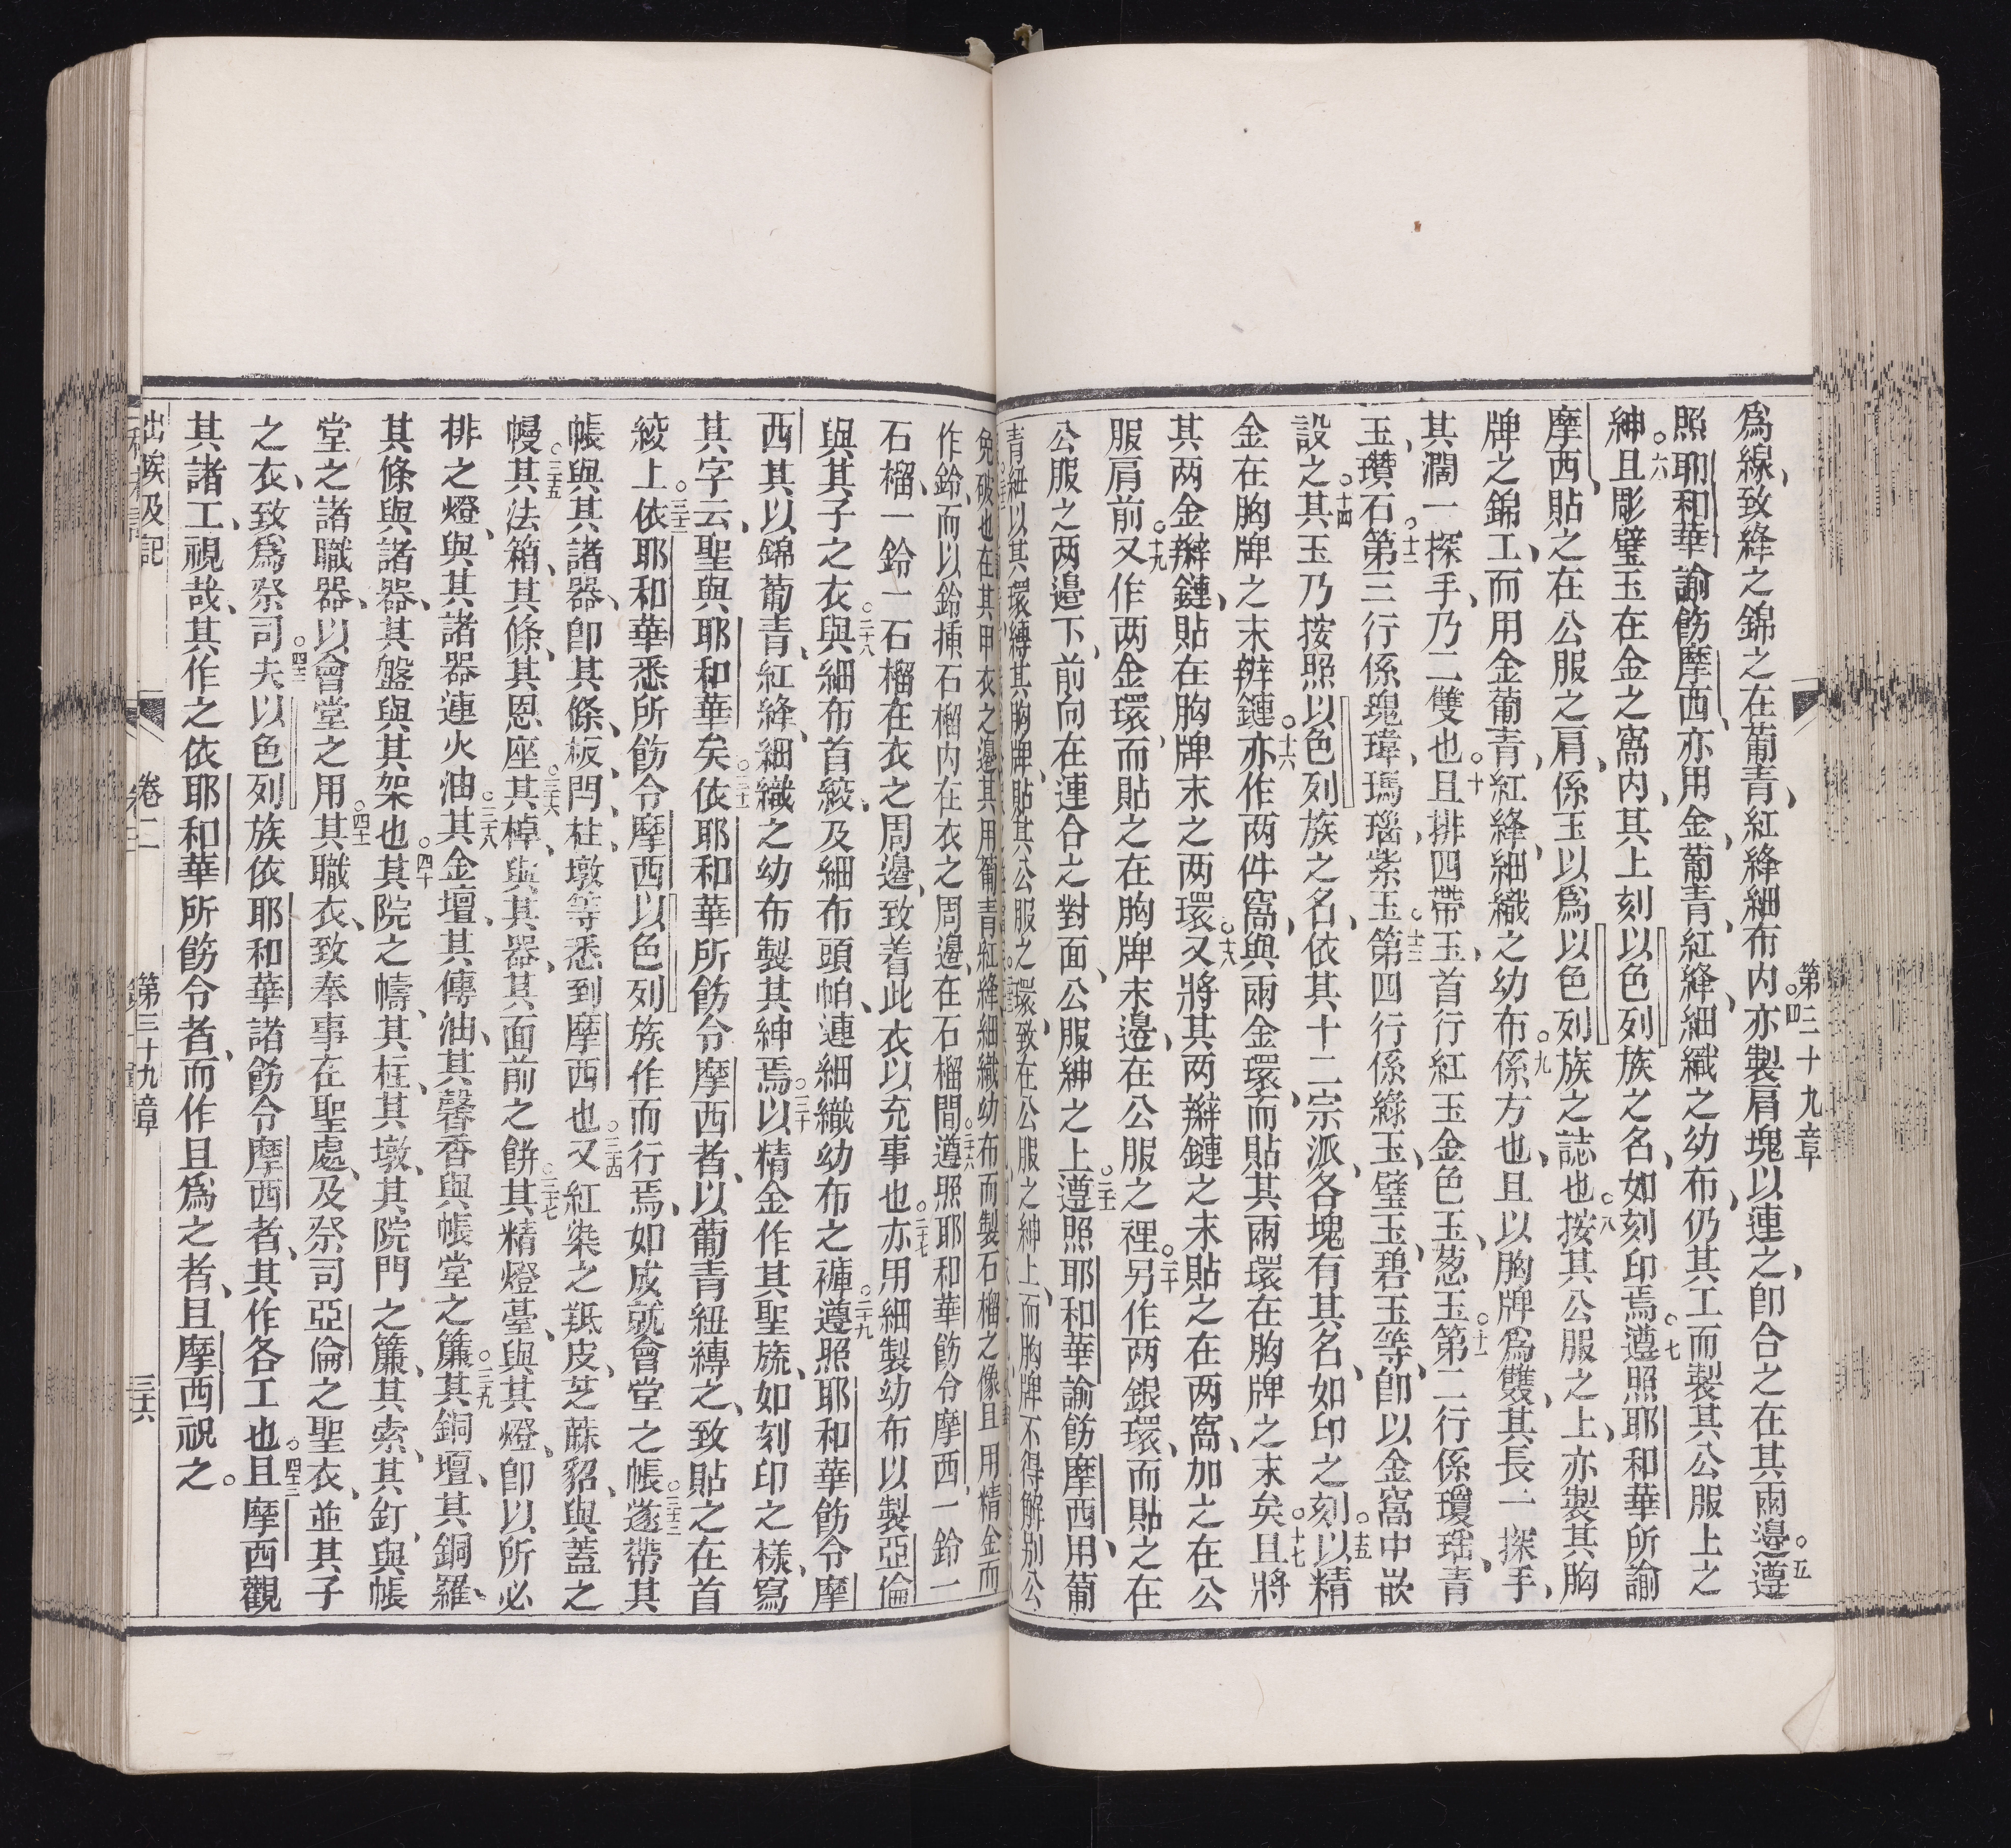 第三十九章
爲線、致絳之錦之在葡青、紅絳細布内、○四亦製肩塊以連之、卽合之在其兩邊、○五遵
照耶和華諭飭摩西、亦用金、葡青、紅絳、細織之幼布、仍其工而製其公服上之
紳、○六且彫璧玉在金之窩内、其上刻以色列族之名、如刻印焉、○七遵照耶和華所諭
摩西、貼之在公服之肩、係玉以爲以色列族之誌也、○八按其公服之上、亦製其胸
牌之錦工、而用金葡青、紅絳、細織之幼布、○九係方也、且以胸牌爲雙、其長一探手、
其濶一探手、乃二雙也、○十且排四帶玉、首行紅玉金色玉、葱玉、○十一第二行係瓊瑶、青
玉、瓚石、○十二第三行係瑰瑋、瑪瑙、紫玉、○十三第四行係綠玉、璧玉、碧玉等、卽以金窩中嵌
設之、○十四其玉乃按照以色列族之名、依其十二宗派、各塊有其名、如印之刻、○十五以精
金在胸牌之末辮鏈、○十六亦作兩件窩、與兩金環、而貼其兩環在胸牌之末矣、○十七且將
其两金辮鏈、貼在胸牌末之两環、○十八又將其两辮鏈之末貼之在两窩、加之在公
服肩前、○十九又作两金環、而貼之在胸牌末邊、在公服之裡、○二十另作两銀環、而貼之在
公服之两邊下、前向在連合之對面、公服紳之上、○二十一遵照耶和華諭飭摩西、用葡
青紐以其環縛其胸牌、貼其公服之環、致在公服之紳上、而胸牌不得解别公
免破也、在其甲衣之邊、其用葡青紅絳細織幼布而製石榴之像、且用精金而
作鈴、而以鈴揷石榴内在衣之周邊、在石榴間、○二十六遵照耶和華飭令摩西、一鈴一
石榴、一鈴一石榴在衣之周邊、致着此衣以充事也、○二十七亦用細製幼布以製亞倫
與其子之衣、○二十八與細布首絞、及細布頭帕、連細織幼布之褲、○二十九遵照耶和華飭令摩
西、其以錦葡青、紅絳、細織之幼布製其紳焉、○三十以精金作其聖旒、如刻印之樣、寫
其字云、聖與耶和華矣、○三十一依耶和華所飭令摩西者、以葡青紐縛之、致貼之在首
綾上、○三十二依耶和華悉所飭令摩西、以色列族作而行焉、如成就會堂之帳、○三十三遂帶其
帳與其諸器、卽其條、板、閂、柱、墩等、悉到摩西也、○三十四又紅染之羝皮、芝蔴貂、與蓋之
幔、○三十五其法箱、其條、其恩座、○三十六其棹、與其器、其面前之餅、○三十七其精燈臺、與其燈、卽以所必
排之燈、與其諸器連火油、○三十八其金壇、其傳油、其馨香、與帳堂之簾、○三十九其銅壇、其銅羅、
其條與諸器、其盤與其架也、○四十其院之幬、其柱、其墩、其院門之簾、其索、其釘、與帳
堂之諸職器、以會堂之用、○四十一其職衣、致奉事在聖處、及祭司亞倫之聖衣、並其子
之衣、致爲祭司夫、○四十二以色列族依耶和華諸飭令摩西者、其作各工也、○四十三且摩西觀
其諸工、視哉、其作之依耶和華所飭令者、而作且爲之者、且摩西祝之。
出埃及記 卷二 第三十九章 三十六